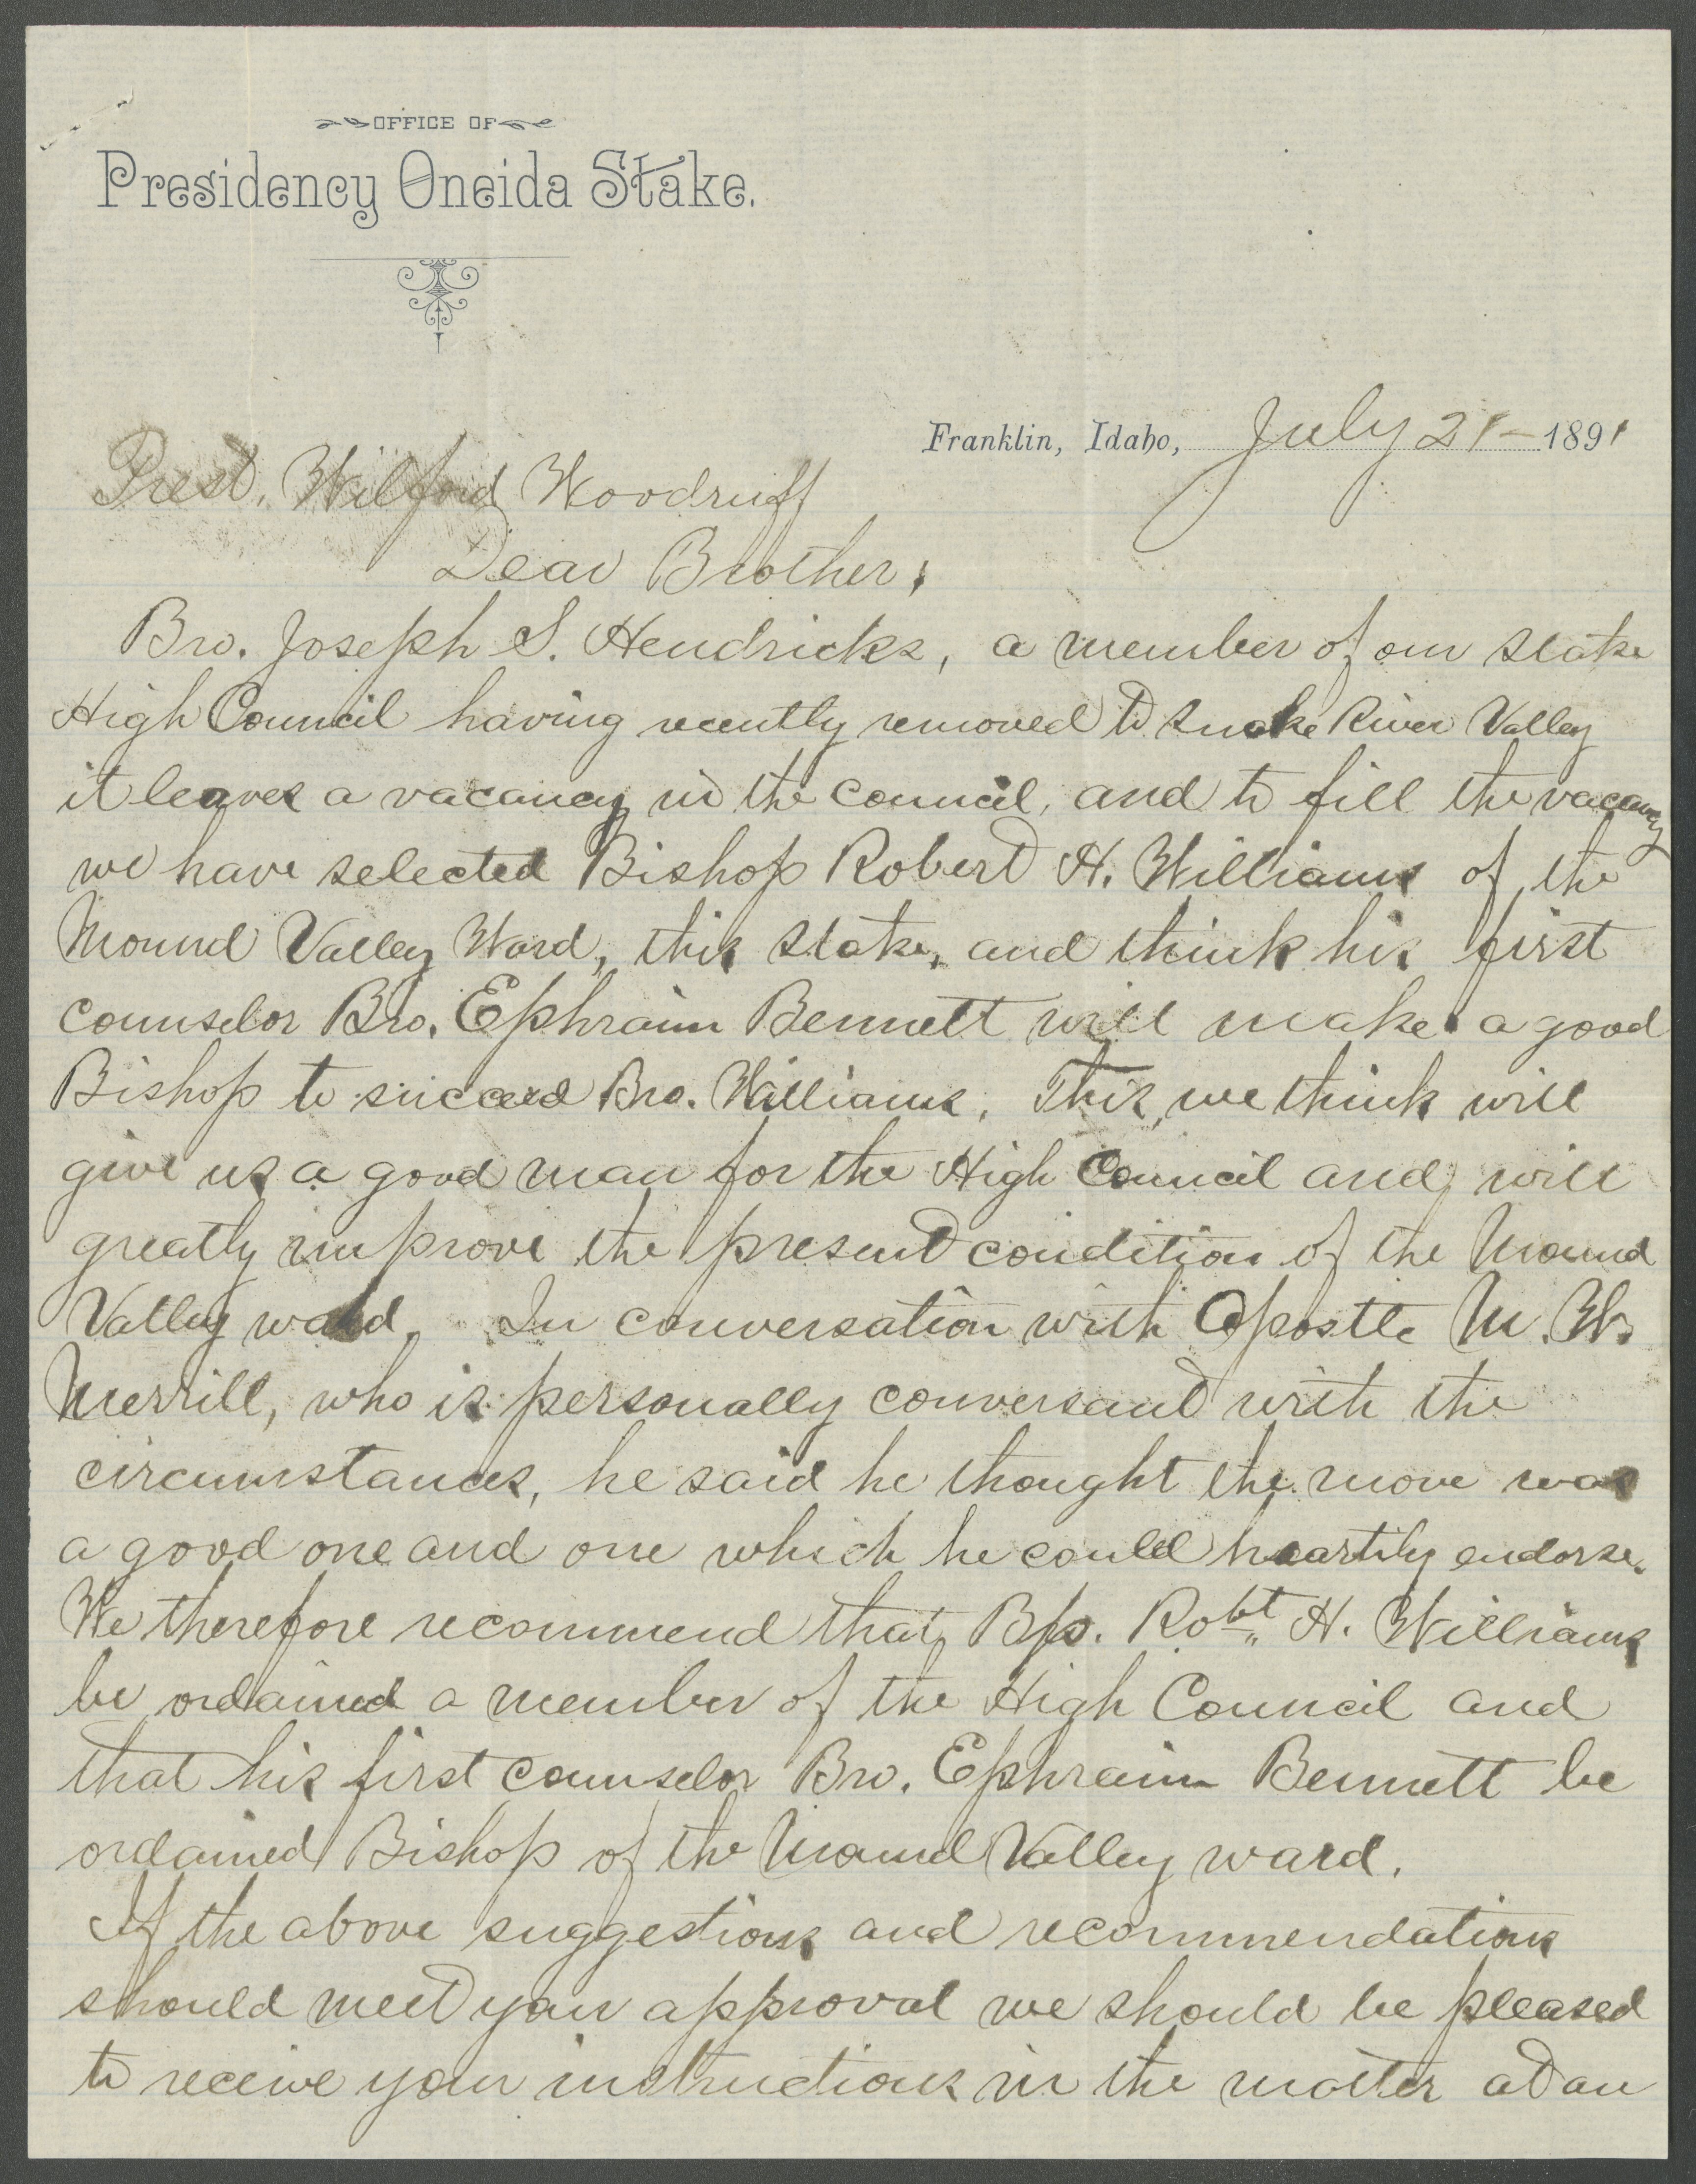 OFFICE OF
Presidency Oneida Stake.
Franklin, Idaho, July 21- 1891
Prest. Wilford Woodruff
Dear Brother;
Bro. Joseph S. Hendricks, a member of our stake
High Council having recently removed to Snake River Valley
it leaves a vacancy in the council, and to fill the vacancy
we have selected Bishop Robert H. Williams of the
Mound Valley Ward, this stake, and think his first
counselor Bro. Ephraim Bennett will make a good
Bishop to succeed Bro. Williams. This, we think will
give us a good man for the High Council and will
greatly improve the present condition of the Mound
Valley ward. In conversation with Apostle M. W.
Merrill, who is personally conversant with the
circumstances, he said he thought the move was
a good one and one which he could heartily endorse.
We therefore recommend that Bp. Robt. H. Williams
be ordained a member of the High Council and
that his first counselor Bro. Ephraim Bennett be
ordained Bishop of the Mound Valley ward.
If the above suggestions and recommendations
should meet your approval we should be pleased
to receive your instructions in the matter at an